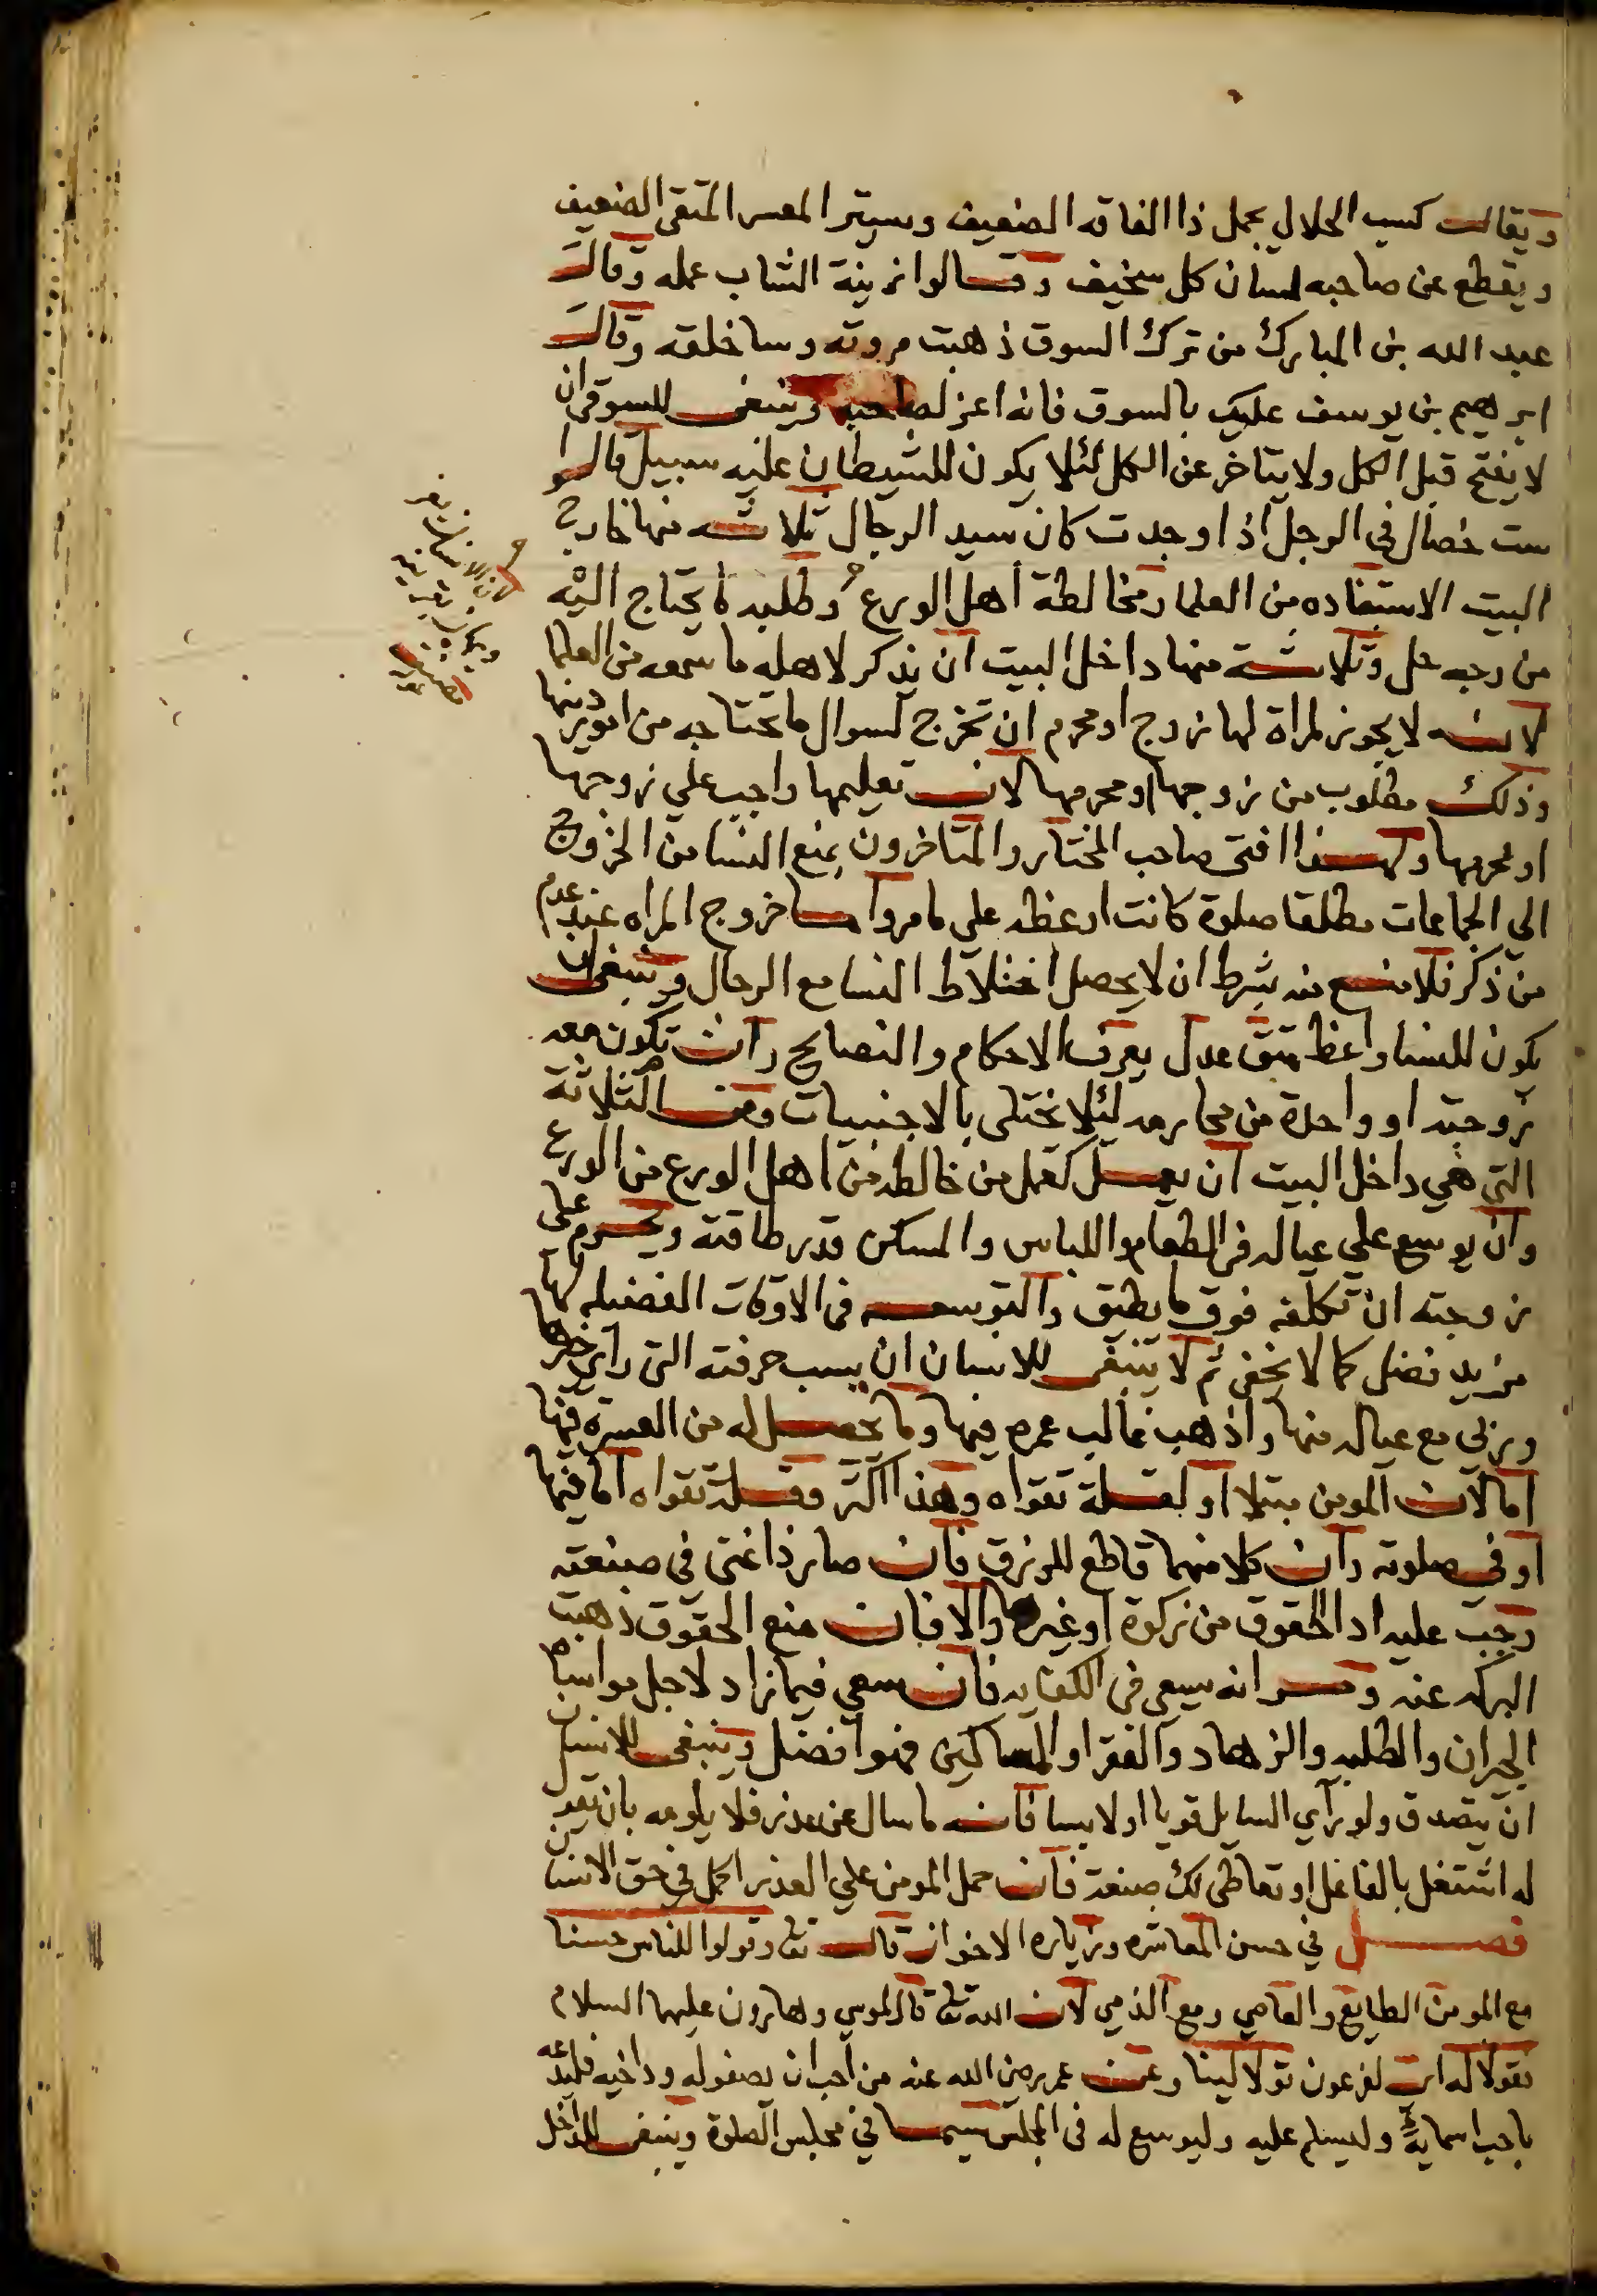 ويقال كسب الحلال يجمل ذا الفاقه الضعيف ويستر المعسر المتقي الضعيف
ويقطع عن صاحبه لسان كل سخيف وقالوا زينة الشاب عمله وقال
عبد الله بن المبارك من ترك السوق ذهبت مروته وسا خلقه وقال
ابرهيم بن يوسف عليك بالسوق فانه اعز لصاحبه وينبغى للسوقى ان
لا يفتح قبل الكل ولا يتاخر عن الكل لئلا يكون للشيطان عليه سبيل قالوا
ست خصال في الرجل اذا وجدت كان سيد الرجال ثلاثه منها خارج
البيت الاستفاده من العلما ومخالطة اهل الورع وطلبه ما يحتاج اليه
من وجه حل وثلاثة منها داخل البيت ان يذكر لاهله ما سمعه من العلما
لانه لا يجوز لمراة لها زوج او محرم ان تخرج لسوال ما تحتاجه من امور دينها
وذلك مطلوب من زوجها او محرمها لان تعليمها واجب علي زوجها
او محرمها ولهذا افتى صاحب المختار والمتاخرون بمنع النسا من الخروج
الي الجماعات مطلقا صلوة كانت او عظه علي ما مر واما خروج المراه عند عدم
من ذكر فلا منع منه بشرط ان لا يحصل اختلاط النسا مع الرجال وينبغى ان
يكون للنسا واعظ متق عدل يعرف الاحكام والنصايح وان تكون معه
زوجته او واحدة من محارمه لئلا يختلى بالاجنبيات ومن الثلاثة
التي هي داخل البيت ان يعمل كعمل من خالطه من اهل الورع من الورع
وان يوسع علي عياله في الطعام واللباس والمسكن قدر طاقته ويحرم على
زوجته ان تكلفه فوق ما يطيق والتوسعه في الاوقات الفضيله لها
مزيد فضل كما لا يخفى ثم لا ينبغى للانسان ان يسب حرفته التي راي خيرها
وربي مع عياله منها واذهب غالب عمره فيها وما يحصل له من العسرة فيها
اما لان المومن مبتلا او لقلة تقواه وهذا اكثر فقلة تقواه اما فيها
او في صلوته وان كلا منهما قاطع للرزق فان صار ذا غنى في صنعته
وجب عليه ادا الحقوق من زكوة او غيرها والا فان منع الحقوق ذهبت
البركه عنه ومر انه سعى في الكفايه فان سعي فيما زاد لاجل مواساة
الجيران والطلبه والزهاد والفقرا والمساكين فهو افضل وينبغى للانسان
ان يتصدق ولو راي السايل قويا او لابسا فانه ما سال عن عذر فلا يلومه بان يقول
له اشتغل بالفاعل او تعاطى لك صنعة فان حمل المومن علي العذر اكمل في حق الانسان
فصل في حسن المعاشره وزياره الاخوان قال تعالى وقولوا للناس حسنا
مع المومن الطايع والعاصي ومع الذمي لان الله تعالى قال لموسي وهارون عليهما السلام
فقولا له اى لفرعون قولا لينا وعن عمر رضي الله عنه من احب ان يصفو له ود اخيه فليدعه
باحب اسمايه وليسلم عليه وليوسع له في المجلس سيما في مجلس الصلوة وينبغى للداخل